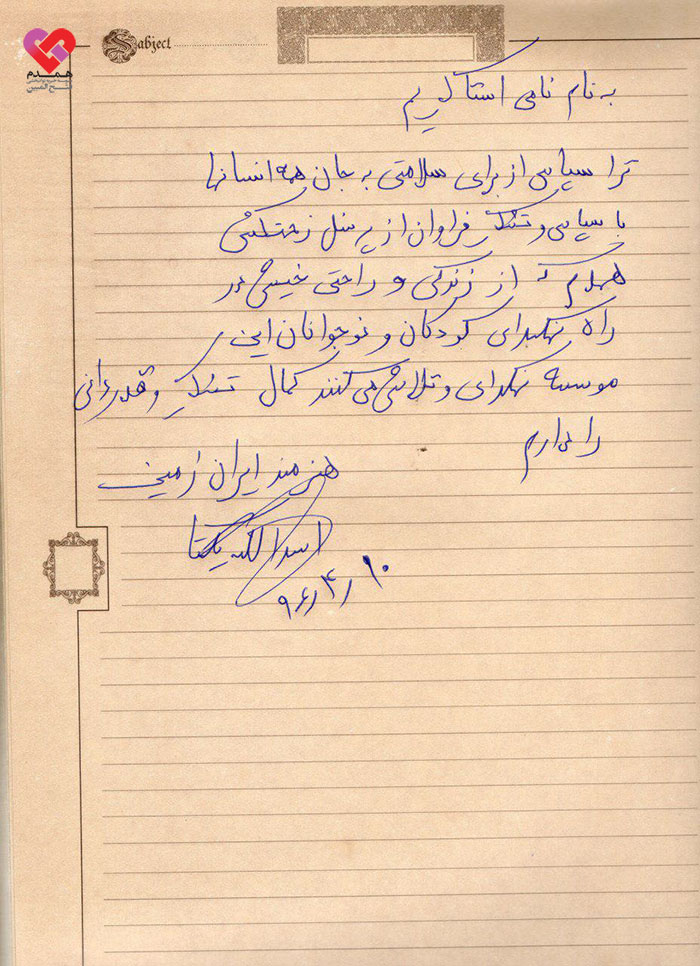 همدم
فتح المبین
Sabject
به نام نامی استاد کریم
ترا سپاس از برای سلامتی به جان همه انسانها
با سپاس و تشکر فراوان از پرسنل زحمتکش
همدم که از زندگی و راحتی خویش در
راه نگهداری کودکان و نوجوانان این
موسسه نگهداری و تلاش می کنند کمال تشکر و قدردانی
را دارم
هنرمند ایران زمین
اسدالله یکتا
۹۶/۴/۱۰